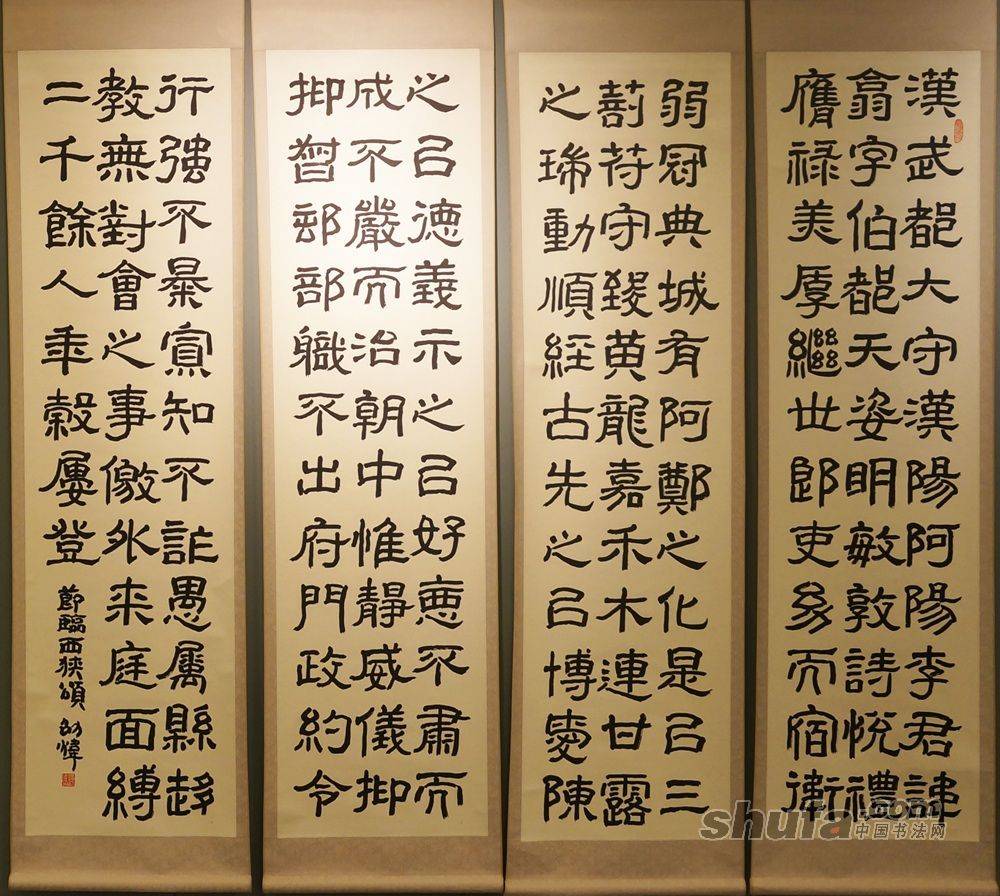 漢武都大守漢陽阿陽李君諱
翕字伯都天姿眀敏敦詩悅禮
膺祿美厚繼世郎吏幼而宿衛
弱冠典城有阿鄭之化是㠯三
剖符守致黃龍嘉禾木連甘露
之瑞動順經古先之㠯博愛陳
之㠯德義示之㠯好惡不肅而
成不嚴而治朝中惟靜威儀抑
抑督郵部職不出府門政約令
行強不暴寡知不詐愚屬縣趍
教無對會之事徼外来庭面縛
二千餘人年穀屢登
節臨西狹頌
shufa.com
中国书法网